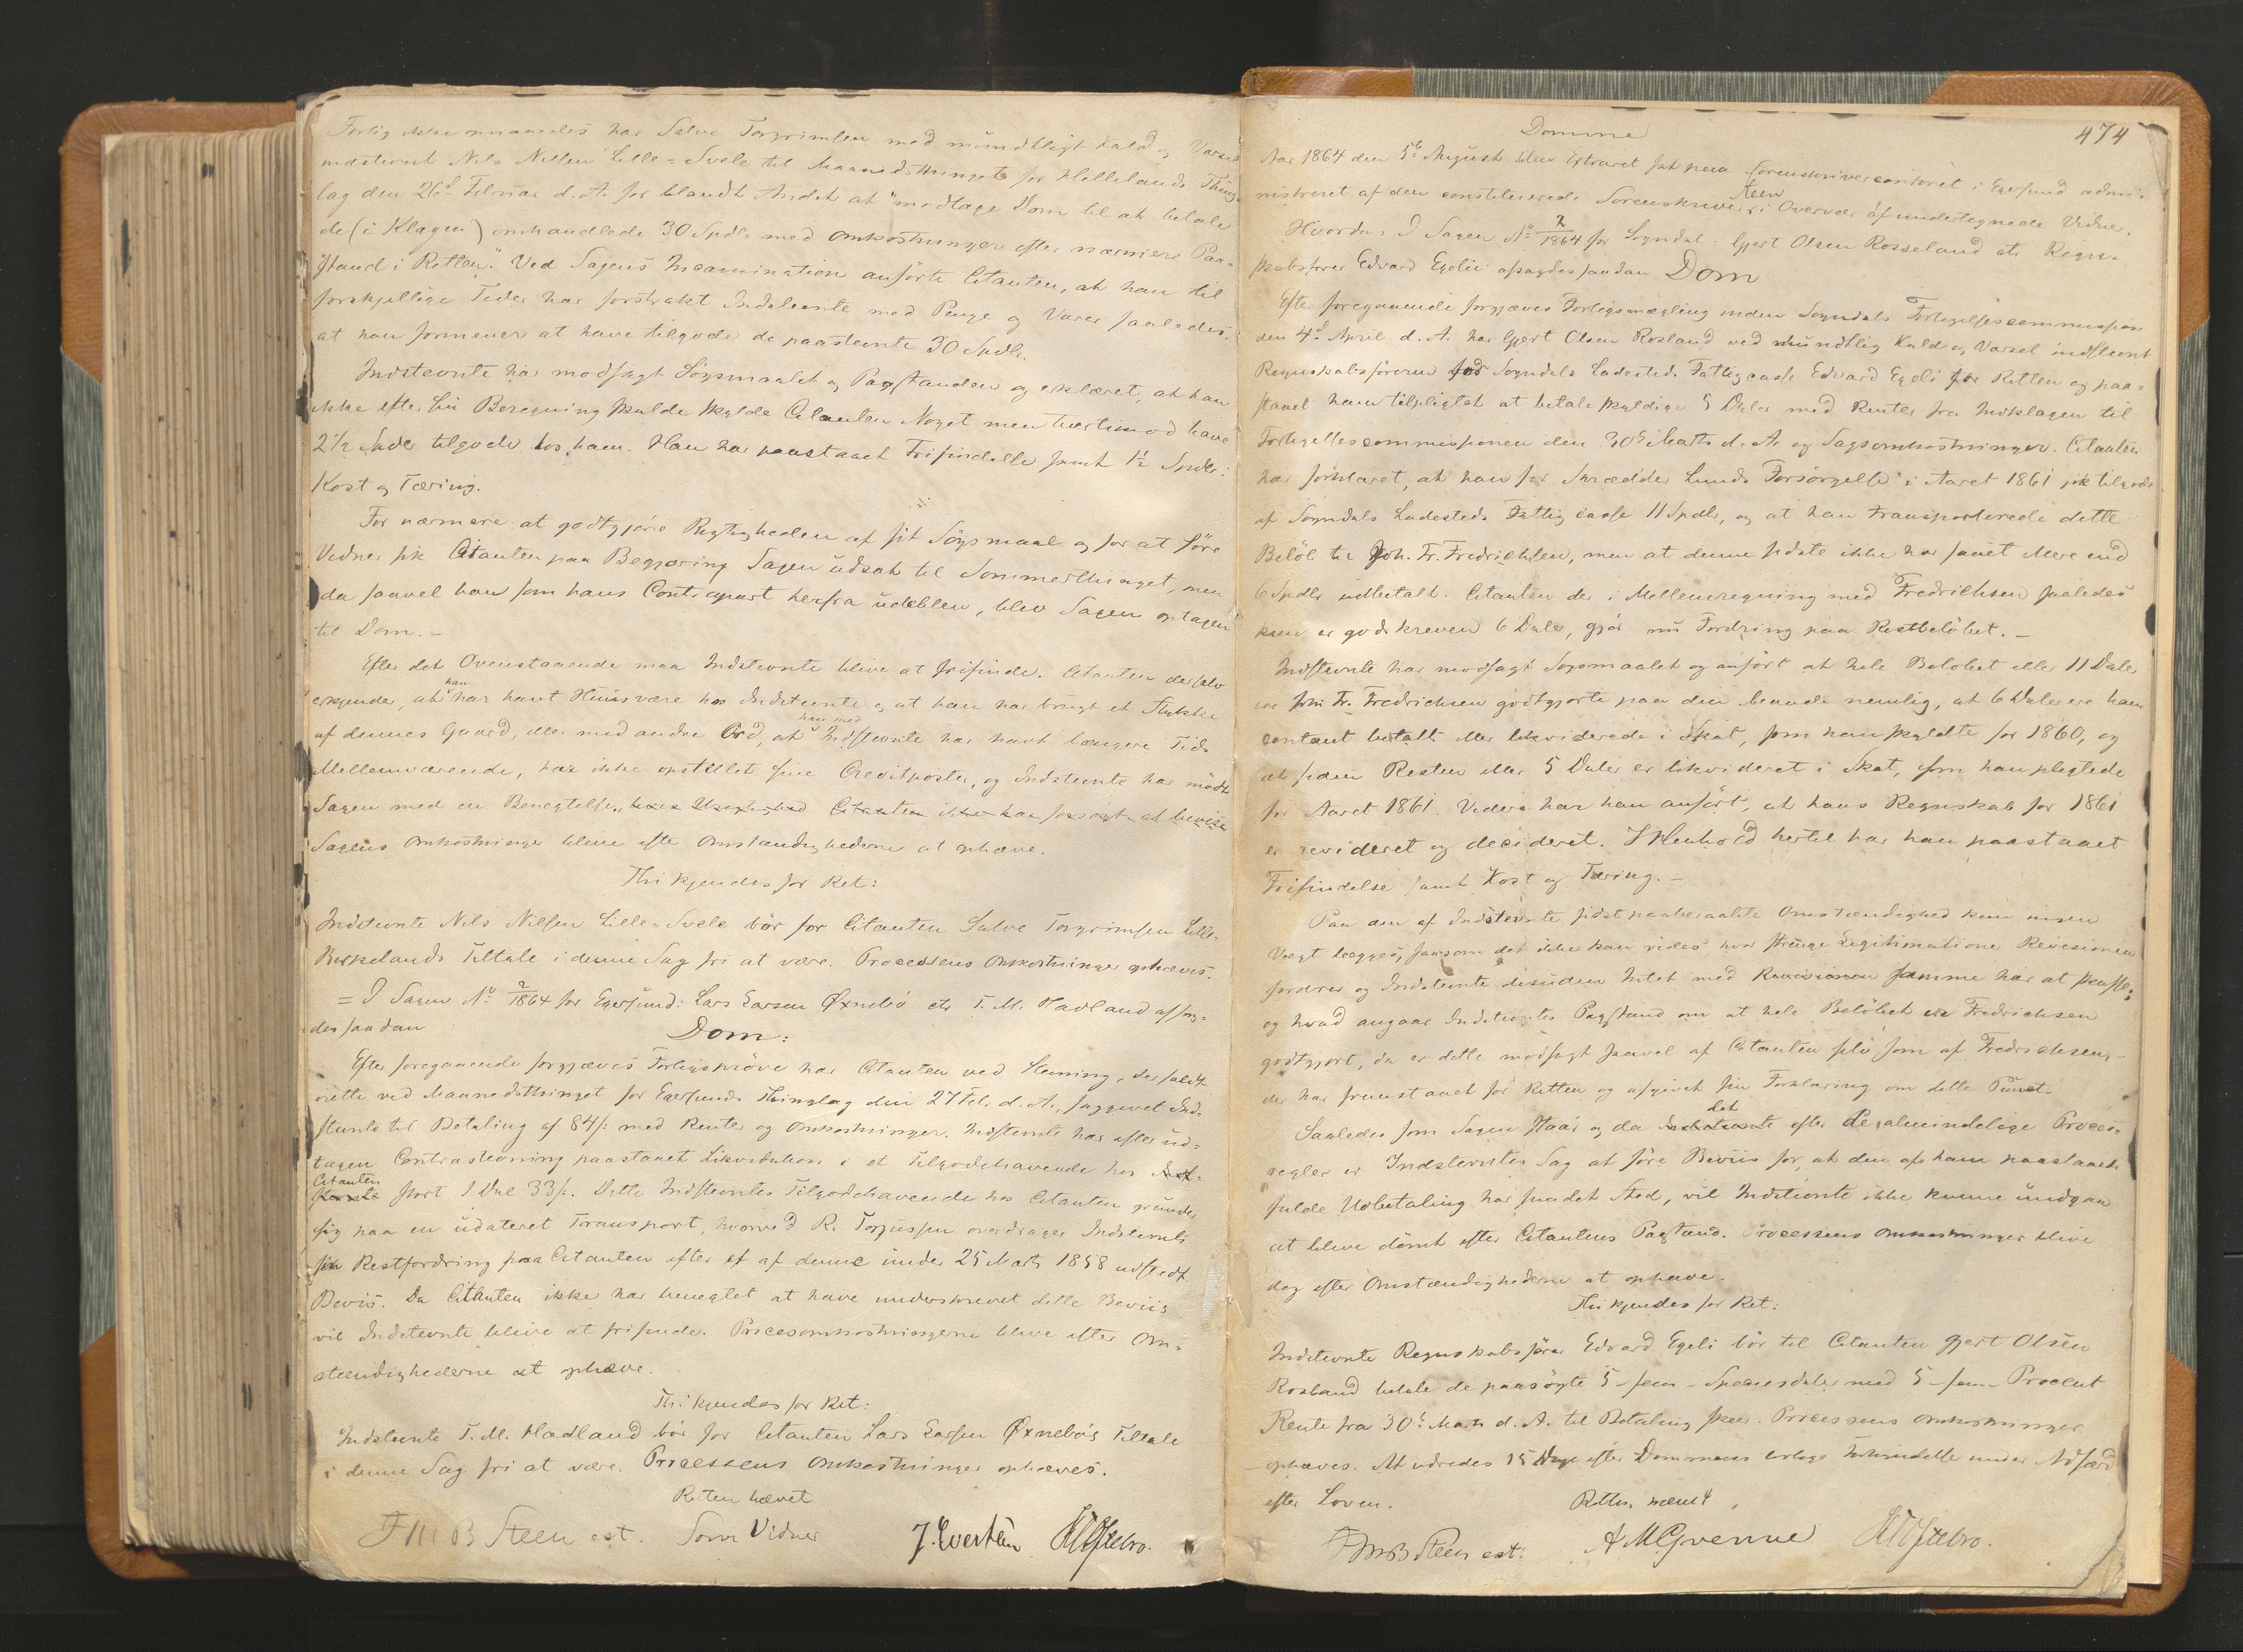 Forlig ikke opnaaedes har Salve Torgrimsen med mundtligt Kald og Varsel
indstevnt Nils Nilsen Lille-Svele til Maanedsthinget for Hellelands Thing-
lag den 26d Februar d. A. for blandt Andet at "modtage Dom til at betale
de (i Klagen) omhandlede 30 Spdlr med Omkostninger efter nærmere Paa-
stand i Retten". Ved Sagens Incamination anførte Citanten, at han til
forskjellige Tider har forstrakt Indstevnte med Penge og Varer saaledes,
at han formener at have tilgode de paastevnte 30 Spdlr.
Indstevnte har modsagt Søgsmaalet og Paastanden og erklæret, at han
ikke efter sin Beregning skulde skylde Citanten Noget men tvertimod have
2 1/2 Spdlr tilgode hos ham. Han har paastaaet Frifindelse samt 1 1/2 Spdlr:
Kost og Tæring.
For nærmere at godtgjøre Rigtigheden af sit Søgsmaal og for at føre
Vidner fik Citanten paa Begjæring Sagen udsat til Sommerthinget, men
da saavel han som hans Contrapart herfra udebleve, blev Sagen optagen
til Dom. -
Efter det Ovenstaaende maa Indstevnte blive at frifinde. Citanten der selv
erkjender, at han har havt Huusvære hos Indstevnte og at han har brugt et Stykke
af dennes Gaard, eller med andre Ord, at han med Indstevnte har havt længere Tids
Mellemværende, har ikke opstillet sine Creditposter, og Indstevnte har mødt
Sagen med en Benegtelse, Citanten ikke har forsøgt at bevise
Sagens Omkostninger blive efter Omstændighederne at ophæve.
Thi kjendes for Ret:
Indstevnte Nils Nilsen Lille-Svele bør for Citanten Salve Torgrimsen Lille-
Birkelands Tiltale i denne Sag fri at være. Processens Omkostninger ophæves.
= I Sagen No 2/1864 for Egersund: Lars Larsen Øxnebø ctr T. M. Hadland afsag-
des saadan
Dom:
Efter foregaaende forgjæves Forligsprøve har Citanten ved Stevning, der faldt
irette ved Maanedsthinget for Egersunds Thinglag den 27 Feb. d. A., sagsøgt Ind-
stevnte til Betaling af 84 s: med Renter og Omkostninger. Indstevnte har efter ud-
tagen Contrastevning paastaaet Likvidation i et Tilgodehavende hos
Citanten stort 1 Dlr 33 s:. Dette Indstevntes Tilgodehavende hos Citanten grunder
sig paa en udateret Transport, hvorved R. Torjussen overdrager Indstevnte
sin Restfordring paa Citanten efter et af denne under 25 Marts 1858 udstedt
Beviis. Da Citanten ikke har benegtet at have underskrevet dette Beviis
vil Indstevnte blive at frifinde. Procesomkostningerne blive efter Om-
stændighederne at ophæve.
Thi kjendes for Ret:
Indstevnte T. M. Hadland bør for Citanten Lars Larsen Øxnebøs Tiltale
i denne Sag fri at være. Processens Omkostninger ophæves.
Retten hævet
F M B Steen cst. Som Vidner J. Evertsen
474
Domme
Aar 1864 den 5te August blev Extraret sat paa Sorenskrivercontoret i Egersund admi-
nistreret af den constituerede Sorenskriver Steen i Overvær af undertegnede Vidner.
Hvorda: I Sagen No 2/1864 for Sogndal: Gjert Olsen Rosseland ctr Regn-
skabsfører Edvard Egelie afsagdes saadan Dom
Efter foregaaende forgjæves Forligsmægling inden Sogndals Forligelsescommission
den 4d April d. A. har Gjert Olsen Rosland ved mundtlig Kald og Varsel indstevnt
Regnskabsføreren for Sogndals Ladesteds Fattigcasse Edvard Egeli for Retten og paa-
staaet ham tilpligtet at betale skyldige 5 Daler med Renter fra Indklagen til
Forligelsescommissionen den 30te Marts d. A. og Sagsomkostninger. Citanten
har forklaret, at han for Skrædder Lunds Forsørgelse i Aaret 1861 fik tilgode
af Sogndals Ladesteds Fattigcasse 11 Spdlr, og at han transporterede dette
Beløb til Joh. Fr. Fredrichsen, men at denne sidste ikke har faaet Mere end
6 Spdlr udbetalt. Citanten der i Mellemregning med Fredrichsen saaledes
kun er godskreven 6 Daler, gjør nu Fordring paa Restbeløbet. -
Indstevnte har modsagt Søgsmaalet og anført at hele Beløbet eller 11 Daler
ere Joh. Fr. Fredrichsen godtgjorte paa den Maade nemlig, at 6 Daler ere ham
contant betalt eller likviderede i Skat, som han skyldte for 1860, og
at saa Resten eller 5 Daler er likvideret i Skat, som han pligtede
for Aaret 1861. Videre har han anført, at hans Regnskab for 1861
er revideret og decideret. I Henhold hertil har han paastaaet
Frifindelse samt Kost og Tæring. -
Paa den af Indstevnte sidst paaberaabte Omstændighed kan ingen
Vægt lægges, saasom det ikke kan vides hvor strenge Legitimationer Revisionen
fordrer og Indstevnte desuden Intet med samme har at skaffe;
og hvad angaar Indstevntes Paastand om at hele Beløbet er Fredrichsen
godtgjort, da er dette modsagt saavel af Citanten selv som af Fredrichsen, -
der har fremstaaet for Retten og afgivet sin Forklaring om dette Punct.
Saaledes som Sagen staar og da det efter de almindelige Proces-
regler er Indstevntes Sag at føre Beviis for, at den af ham paastaaede
fulde Udbetaling har fundet Sted, vil Indstevnte ikke kunne undgaa
at blive dømt efter Citantens Paastand. Processens Omkostninger blive
dog efter Omstændighederne at ophæve.
Thi kjendes for Ret:
Indstevnte Regnskabsfører Edvard Egeli bør til Citanten Gjert Olsen
Rosland betale de paasøgte 5 - fem - Speciesdaler med 5 - fem - Procent
Rente fra 30te Marts d. A. til Betaling skeer. Processens Omkostninger
ophæves. At udredes 15 Dage efter Dommens lovlige Forkyndelse under Adfærd
efter Loven.
Retten hævet
F M B Steen cst.